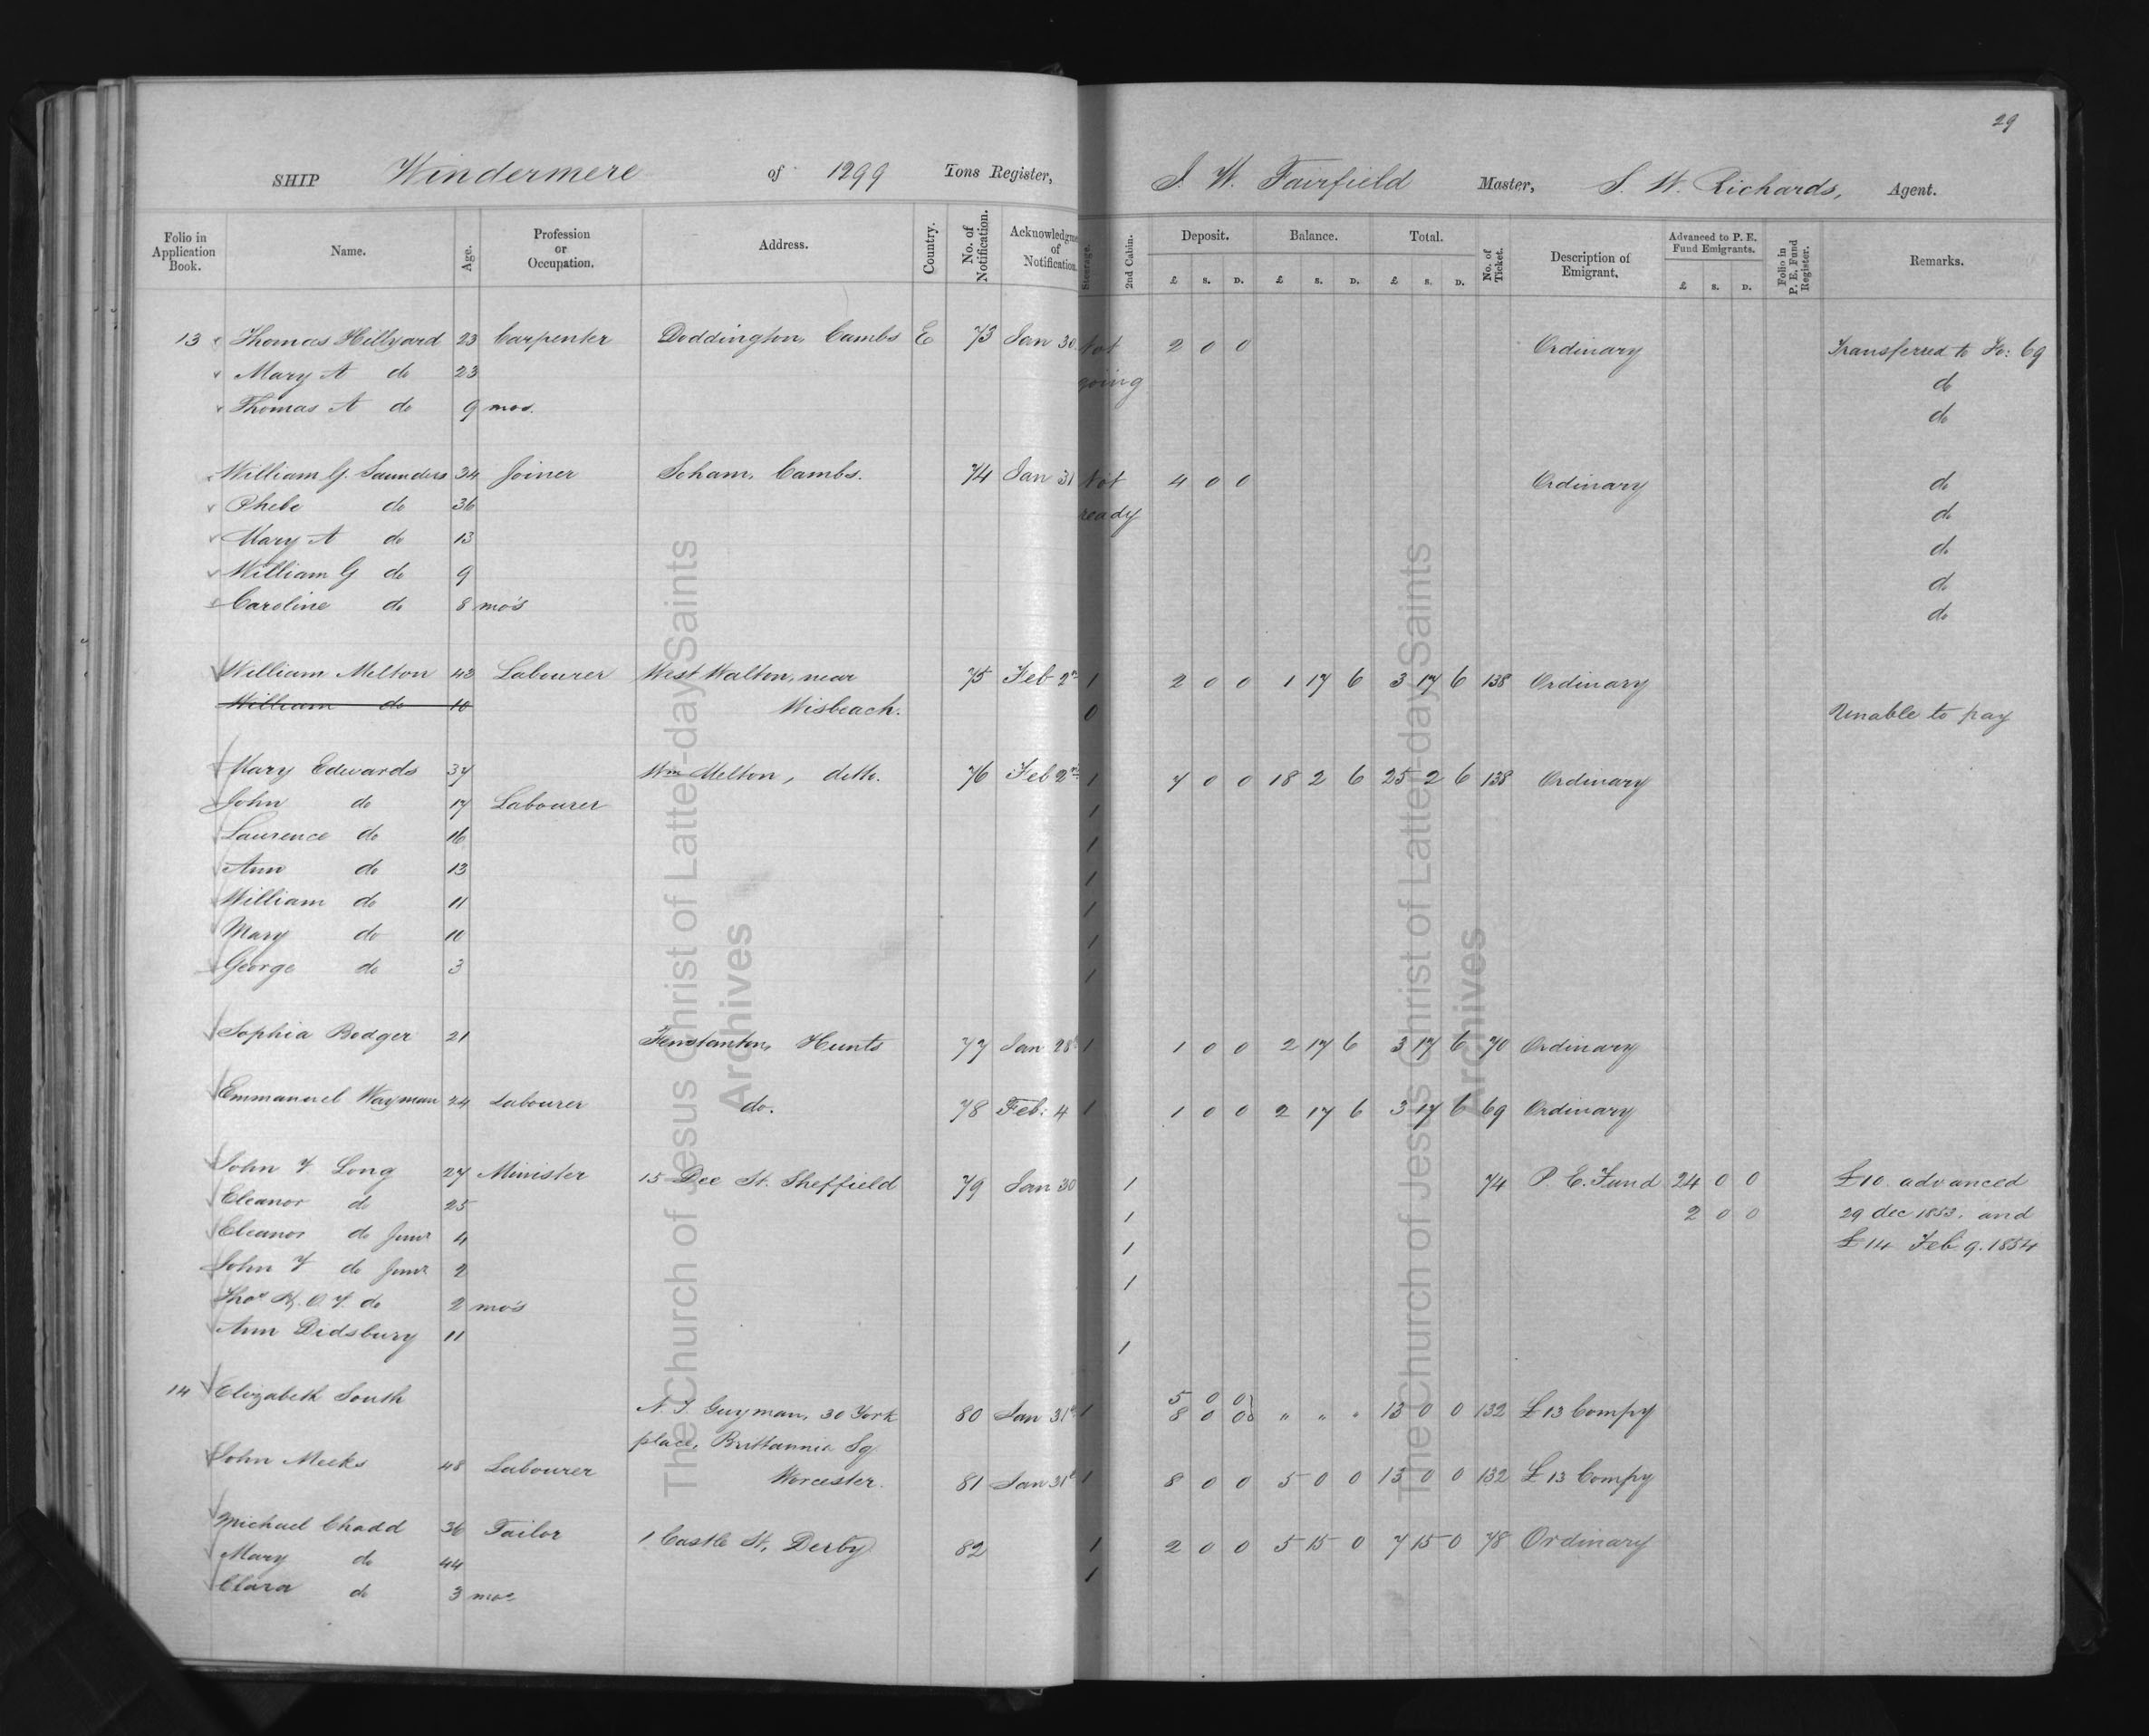 29
SHIP Windermere of 1299 Tons Register, J. W. Fairfield Master, S. W. Richards, Agent.
Folio in Application Book. Name. Age. Profession or Occupation. Address. Country. No. of Notification. Acknowledgme of Notification. Steerage. 2nd Cabin. Deposit. Balance. Total. No. of Ticket. Description of Emigrant. Advanced to P. E. Fund Emigrants. Folio in P. E. Fund Register. Remarks.
£ S. D. £ S. D. £ S. D. £ S. D.
13 Thomas Hillyard 23 Carpenter Doddington, Cambs E 73 Jan 30 Not 2 0 0 Ordinary Transferred to Fo: 69
Mary A do 23 going do
Thomas A do 9 mos. do
William G. Saunders 34 Joiner Soham, Cambs. 74 Jan 31 Not 4 0 0 Ordinary do
Phebe do 36 ready do
Mary A do 13 do
William G do 9 do
Caroline do 8 mo's do
William Melton 43 Labourer West Walton, near 75 Feb 2nd 1 2 0 0 1 17 6 3 17 6 138 Ordinary
William do 10 Wisbeach. 0 Unable to pay
Mary Edwards 37 Wm Melton, ditto. 76 Feb 2nd 1 7 0 0 18 2 6 25 2 6 138 Ordinary
John do 17 Labourer 1
Laurence do 16 1
Ann do 13 1
William do 11 1
Mary do 10 1
George do 3 1
Sophia Bodger 21 Fenstanton, Hunts 77 Jan 28 1 1 0 0 2 17 6 3 17 6 70 Ordinary
Emmanuel Wayman 24 Labourer do. 78 Feb: 4 1 1 0 0 2 17 6 3 17 6 69 Ordinary
John F. Long 27 Minister 15 Dee St. Sheffield 79 Jan 30 1 74 P. E. Fund 24 0 0 £10 advanced
Eleanor do 25 1 2 0 0 29 dec 1853, and
Eleanor do Junr 4 1 £14 Feb. 9. 1854
John F do Junr 2 1
Thos do 2 mo's
Ann Didsbury 11 1
14 Elizabeth South 5 0 0
N. T. Guyman, 30 York 80 Jan 31st 1 8 0 0 " " " 13 0 0 132 £13 Compy
place, Brittannia Sq.
John Meeks 48 Labourer Worcester. 81 Jan 31st 1 8 0 0 5 0 0 13 0 0 132 £13 Compy
Michael Chadd 36 Tailor 1 Castle St, Derby 82 1 2 0 0 5 15 0 7 15 0 78 Ordinary
Mary do 44 1
Clara do 3 mos
The Church of Jesus Christ of Latter-day Saints
Archives
The Church of Jesus Christ of Latter-day Saints
Archives